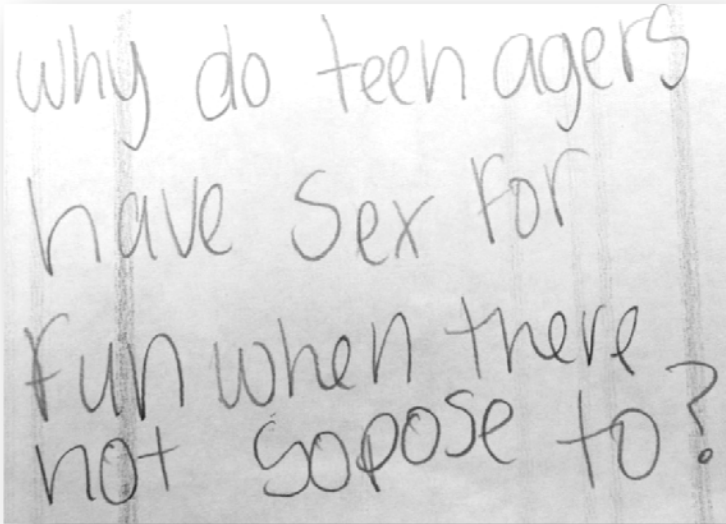 why do teenagers
have sex for
fun when there
not sopose to?